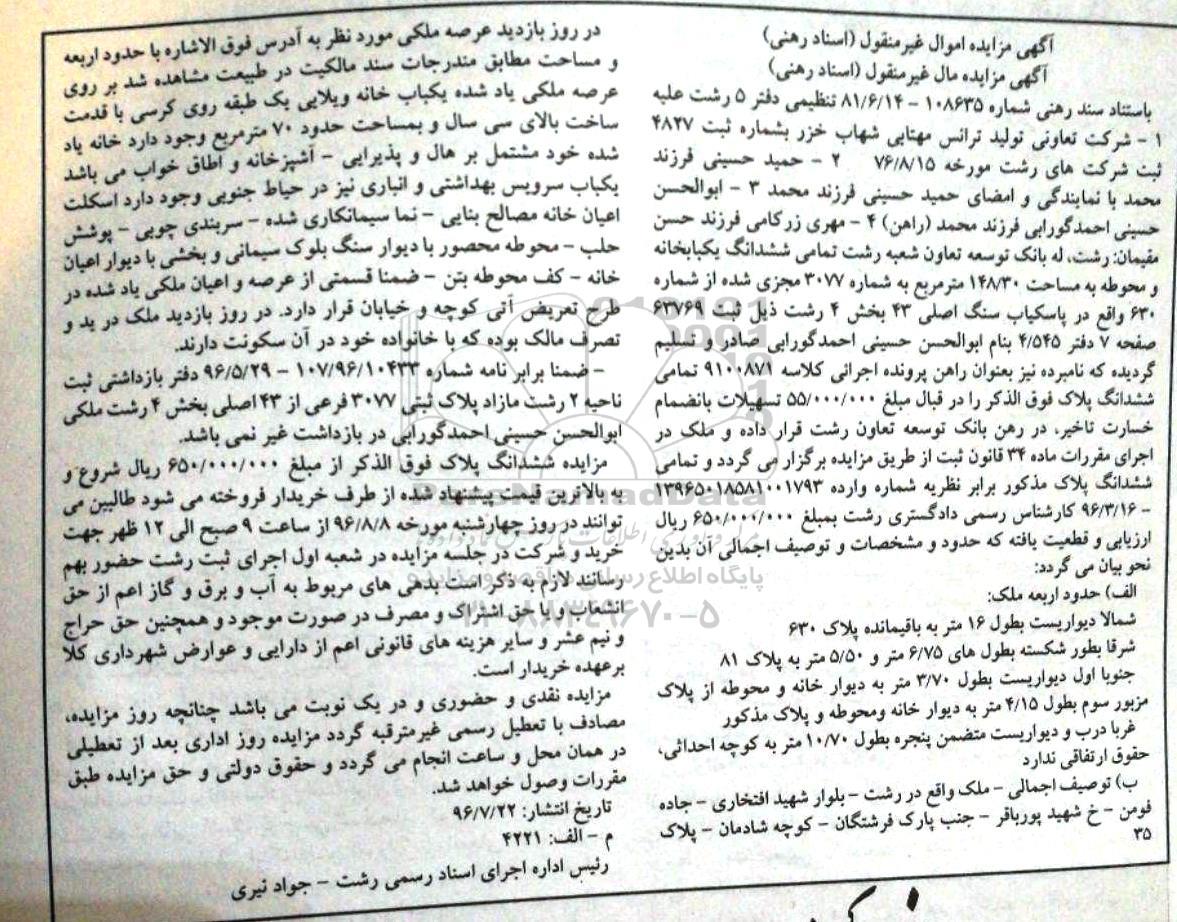 آگهی مزایده اموال غیرمنقول (اسناد رهنی)
آگهی مزایده مال غیرمنقول (اسناد رهنی)
باستناد سند رهنی شماره ۱۰۸۶۳۵ – ۸۱/۶/۱۴ تنظیمی دفتر ۵ رشت علیه
۱ – شرکت تعاونی تولید ترانس مهتابی شهاب خزر بشماره ثبت ۴۸۲۷
ثبت شرکت های رشت مورخه ۷۶/۸/۱۵ ۲ – حمید حسینی فرزند
محمد با نمایندگی و امضای حمید حسینی فرزند محمد ۳ – ابوالحسن
حسینی احمدگورابی فرزند محمد (راهن) ۴ – مهری زرکامی فرزند حسن
مقیمان: رشت، له بانک توسعه تعاون شعبه رشت تمامی ششدانگ یکبابخانه
و محوطه به مساحت ۱۴۸/۳۰ مترمربع به شماره ۳۰۷۷ مجزی شده از شماره
۶۳۰ واقع در پاسکیاب سنگ اصلی ۴۳ بخش ۴ رشت ذیل ثبت ۶۳۷۶۹
صفحه ۷ دفتر ۴/۵۴۵ بنام ابوالحسن حسینی احمدگورابی صادر و تسلیم
گردیده که نامبرده نیز بعنوان راهن پرونده اجرائی کلاسه ۹۱۰۰۸۷۱ تمامی
ششدانگ پلاک فوق الذکر را در قبال مبلغ ۵۵/۰۰۰/۰۰۰ تسهیلات بانضمام
خسارت تاخیر، در رهن بانک توسعه تعاون رشت قرار داده و ملک در
اجرای مقررات ماده ۳۴ قانون ثبت از طریق مزایده برگزار می گردد و تمامی
ششدانگ پلاک مذکور برابر نظریه شماره وارده ۱۳۹۶۵۰۱۸۵۸۱۰۰۱۷۹۳
– ۹۶/۳/۱۶ کارشناس رسمی دادگستری رشت بمبلغ ۶۵۰/۰۰۰/۰۰۰ ریال
ارزیابی و قطعیت یافته که حدود و مشخصات و توصیف اجمالی آن بدین
نحو بیان می گردد:
الف) حدود اربعه ملک:
شمالا دیواریست بطول ۱۶ متر به باقیمانده پلاک ۶۳۰
شرقا بطور شکسته بطول های ۶/۷۵ متر و ۵/۵۰ متر به پلاک ۸۱
جنوبا اول دیواریست بطول ۳/۷۰ متر به دیوار خانه و محوطه از پلاک
مزبور سوم بطول ۴/۱۵ متر به دیوار خانه ومحوطه و پلاک مذکور
غربا درب و دیواریست متضمن پنجره بطول ۱۰/۷۰ متر به کوچه احداثی،
حقوق ارتفاقی ندارد
ب) توصیف اجمالی – ملک واقع در رشت – بلوار شهید افتخاری – جاده
فومن – خ شهید پورباقر – جنب پارک فرشتگان – کوچه شادمان – پلاک
۳۵
در روز بازدید عرصه ملکی مورد نظر به آدرس فوق الاشاره با حدود اربعه
و مساحت مطابق مندرجات سند مالکیت در طبیعت مشاهده شد بر روی
عرصه ملکی یاد شده یکباب خانه ویلایی یک طبقه روی کرسی با قدمت
ساخت بالای سی سال و بمساحت حدود ۷۰ مترمربع وجود دارد خانه یاد
شده خود مشتمل بر هال و پذیرایی – آشپزخانه و اطاق خواب می باشد
یکباب سرویس بهداشتی و انباری نیز در حیاط جنوبی وجود دارد اسکلت
اعیان خانه مصالح بنایی – نما سیمانکاری شده – سربندی چوبی – پوشش
حلب – محوطه محصور با دیوار سنگ بلوک سیمانی و بخشی با دیوار اعیان
خانه – کف محوطه بتن – ضمنا قسمتی از عرصه و اعیان ملکی یاد شده در
طرح تعریض آتی کوچه و خیابان قرار دارد. در روز بازدید ملک در ید و
تصرف مالک بوده که با خانواده خود در آن سکونت دارند.
– ضمنا برابر نامه شماره ۱۰۷/۹۶/۱۰۴۳۳ – ۹۶/۵/۲۹ دفتر بازداشتی ثبت
ناحیه ۲ رشت مازاد پلاک ثبتی ۳۰۷۷ فرعی از ۴۳ اصلی بخش ۴ رشت ملکی
ابوالحسن حسینی احمدگورابی در بازداشت غیر نمی باشد.
مزایده ششدانگ پلاک فوق الذکر از مبلغ ۶۵۰/۰۰۰/۰۰۰ ریال شروع و
به بالاترین قیمت پیشنهاد شده از طرف خریدار فروخته می شود طالبین می
توانند در روز چهارشنبه مورخه ۹۶/۸/۸ از ساعت ۹ صبح الی ۱۲ ظهر جهت
خرید و شرکت در جلسه مزایده در شعبه اول اجرای ثبت رشت حضور بهم
رسانند لازم به ذکر است بدهی های مربوط به آب و برق و گاز اعم از حق
انشعاب و یا حق اشتراک و مصرف در صورت موجود و همچنین حق حراج
و نیم عشر و سایر هزینه های قانونی اعم از دارایی و عوارض شهرداری کلا
برعهده خریدار است.
مزایده نقدی و حضوری و در یک نوبت می باشد چنانچه روز مزایده،
مصادف با تعطیل رسمی غیرمترقبه گردد مزایده روز اداری بعد از تعطیلی
در همان محل و ساعت انجام می گردد و حقوق دولتی و حق مزایده طبق
مقررات وصول خواهد شد.
تاریخ انتشار: ۹۶/۷/۲۲
م – الف: ۴۲۲۱
رئیس اداره اجرای اسناد رسمی رشت – جواد نیری
ParsNamadData
پایگاه اطلاع رسانی مناقصه و مزایده
۰۲۱-۸۸۳۴۹۶۷۰-۵